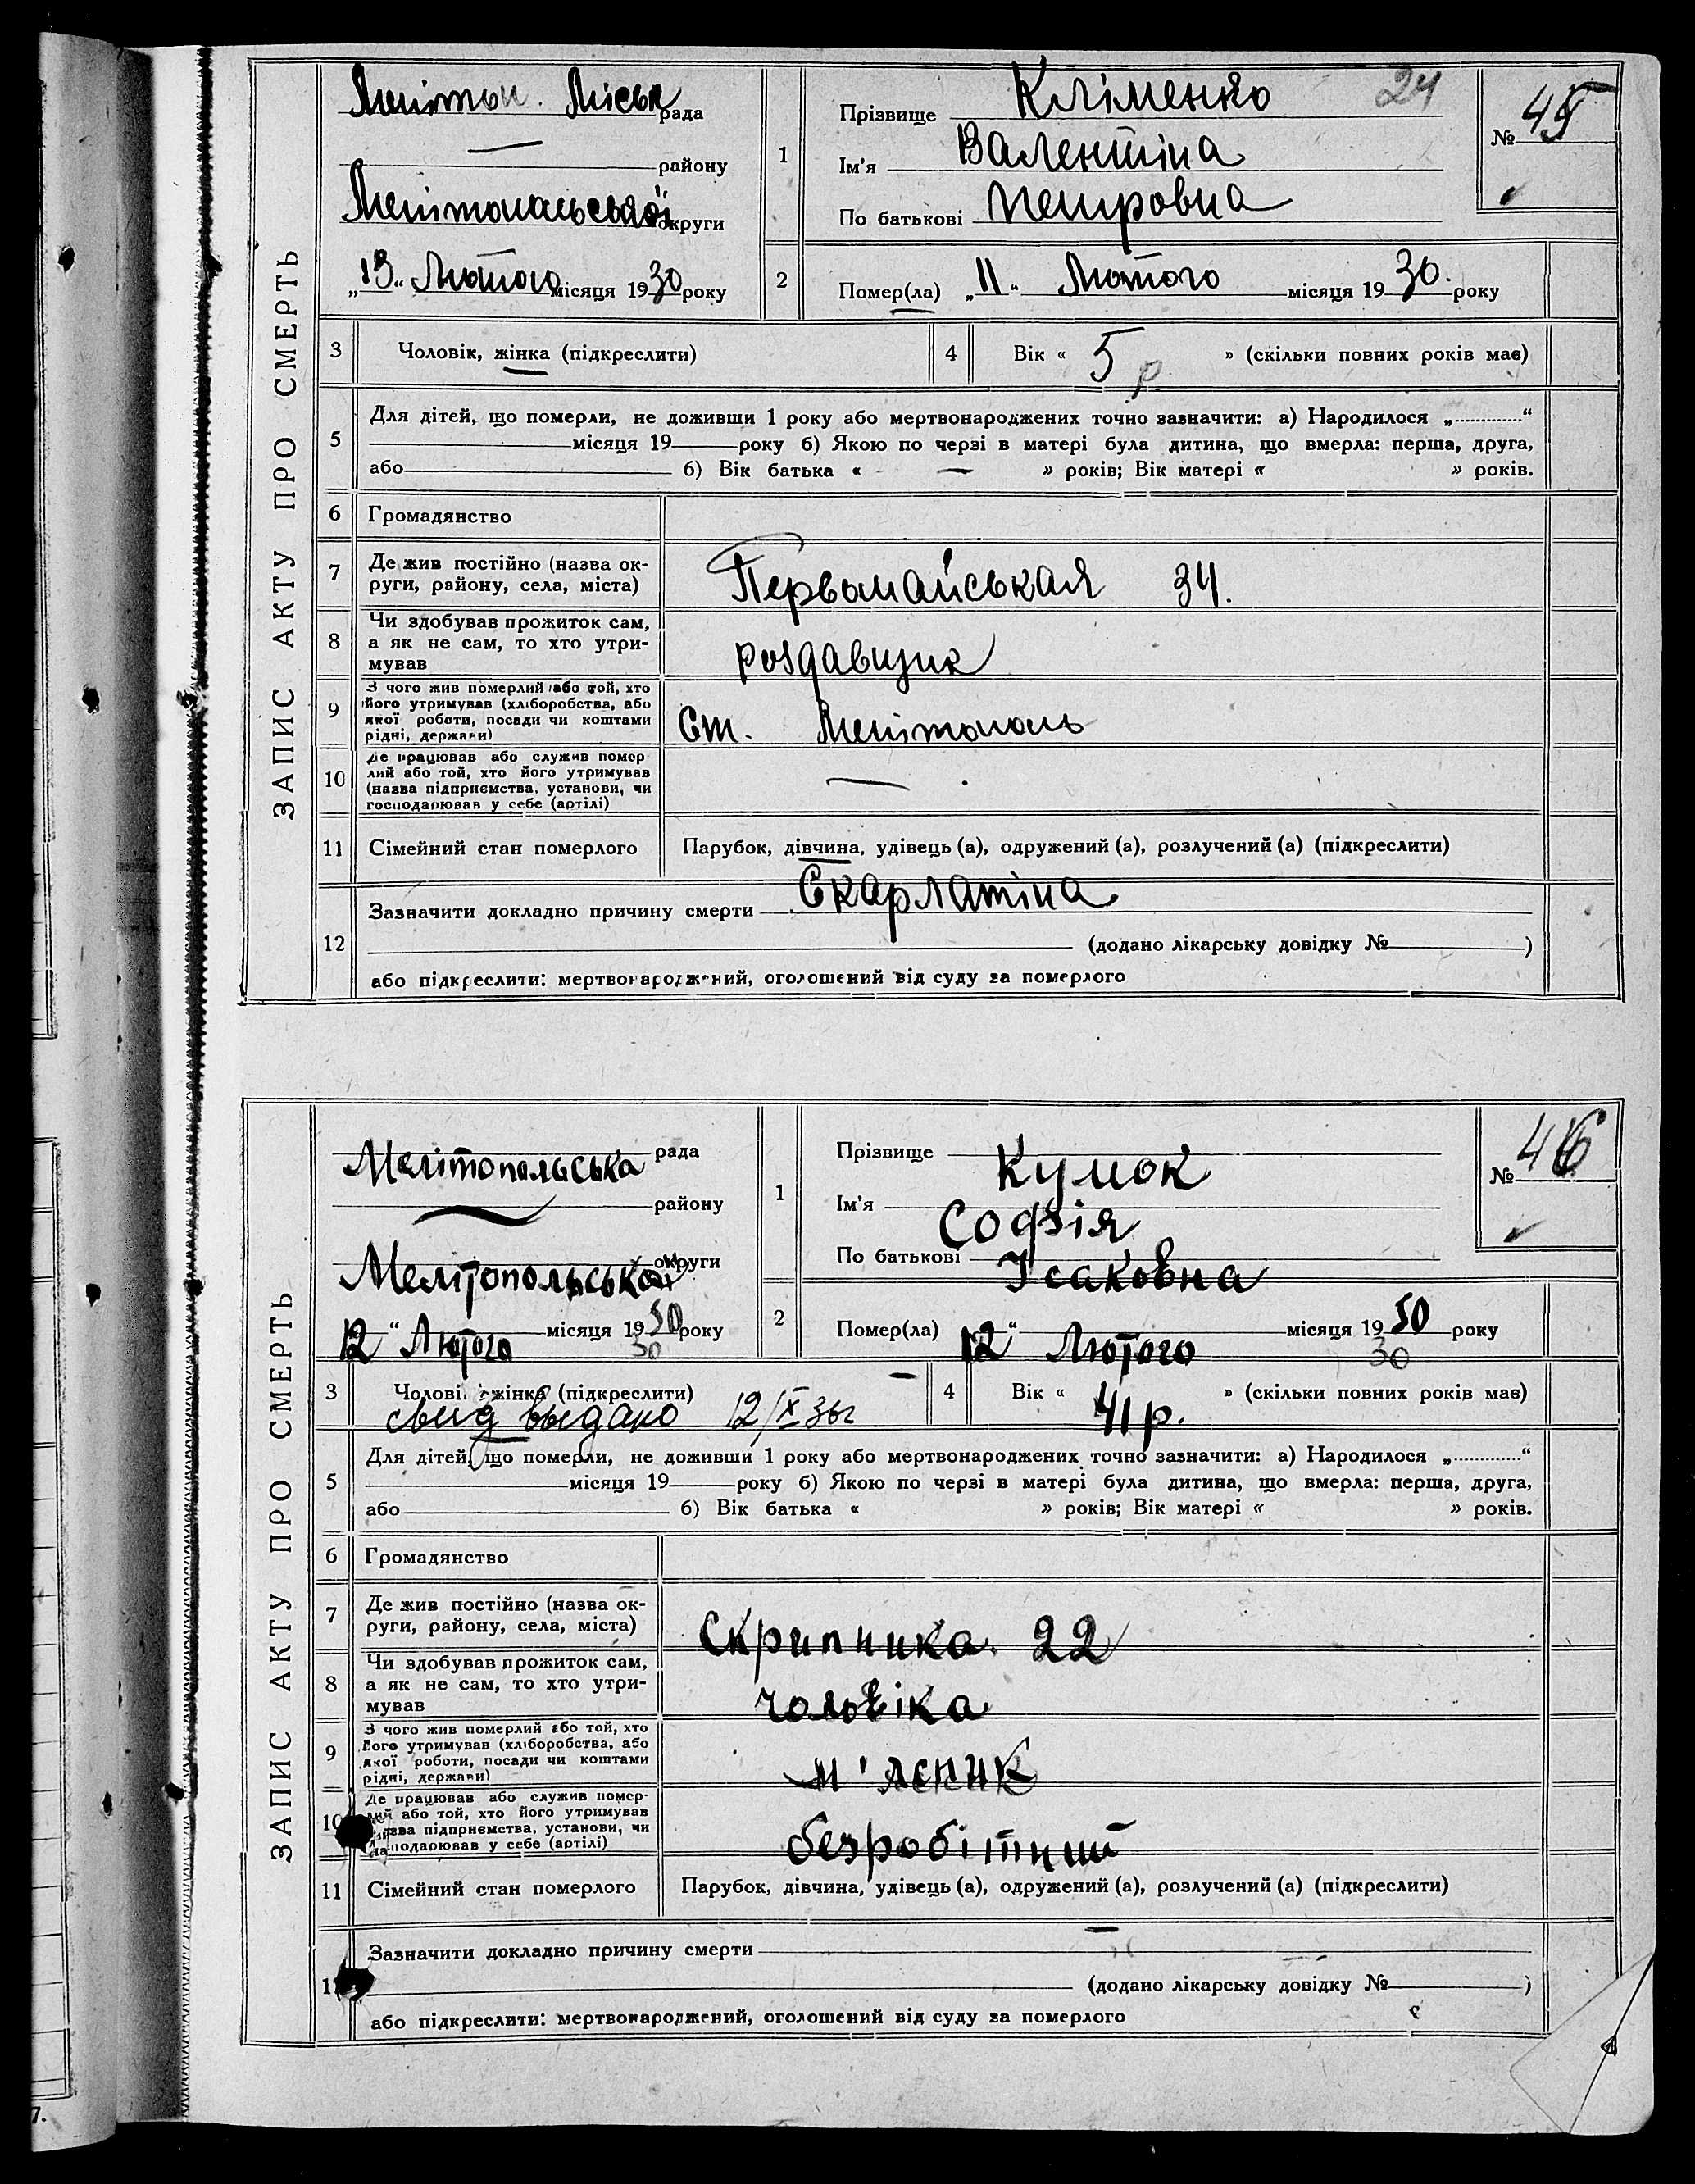 ЗАПИС АКТУ ПРО СМЕРТЬ
Мелітоп. Міськ рада
району
Мелітопольської округи
„13“ Лютого місяця 1930 року
1
Прізвище Кліменко
24
Ім'я Валентіна
По батькові Петровна
№ 45
2
Помер(ла) „11“ Лютого місяця 1930. року
3
Чоловік, жінка (підкреслити)
4
Вік « 5 р » (скільки повних років має)
5
Для дітей, що померли, не доживши 1 року або мертвонароджених точно зазначити: а) Народилося „ “
місяця 19 року б) Якою по черзі в матері була дитина, що вмерла: перша, друга,
або б) Вік батька « — » років; Вік матері « » років.
6
Громадянство
7
Де жив постійно (назва ок-
руги, району, села, міста)
Первомайськая 34.
8
Чи здобував прожиток сам,
а як не сам, то хто утри-
мував
роздавщик
9
З чого жив померлий або той, хто
його утримував (хліборобства, або
якої роботи, посади чи коштами
рідні, держави)
Ст. Мелітополь
10
Де працював або служив помер
лий або той, хто його утримував
(назва підприємства, установи, чи
господарював у себе (артілі)
—
11
Сімейний стан померлого
Парубок, дівчина, удівець (а), одружений (а), розлучений (а) (підкреслити)
12
Зазначити докладно причину смерти Скарлатіна
(додано лікарську довідку № )
або підкреслити: мертвонароджений, оголошений від суду за померлого
ЗАПИС АКТУ ПРО СМЕРТЬ
Мелітопольська рада
району
Мелітопольська округи
12 “ Лютого місяця 1950 року
30
1
Прізвище Кумок
Ім'я Софія
По батькові Ісаковна
№ 46
2
Помер(ла) 12 “ Лютого місяця 1950 року
30
3
Чоловік, жінка (підкреслити)
свид выдано 12/X 36г
4
Вік « 41 р. » (скільки повних років має)
5
Для дітей, що померли, не доживши 1 року або мертвонароджених точно зазначити: а) Народилося „ “
місяця 19 року б) Якою по черзі в матері була дитина, що вмерла: перша, друга,
або б) Вік батька « » років; Вік матері « » років.
6
Громадянство
7
Де жив постійно (назва ок-
руги, району, села, міста)
Скрипника. 22
8
Чи здобував прожиток сам,
а як не сам, то хто утри-
мував
чоловіка
9
З чого жив померлий або той, хто
його утримував (хліборобства, або
якої роботи, посади чи коштами
рідні, держави)
м'ясник
10
Де працював або служив помер-
лий або той, хто його утримував
назва підприємства, установи, чи
господарював у себе (артілі)
безробітний
11
Сімейний стан померлого
Парубок, дівчина, удівець (а), одружений (а), розлучений (а) (підкреслити)
Зазначити докладно причину смерти
(додано лікарську довідку № )
або підкреслити: мертвонароджений, оголошений від суду за померлого
7.